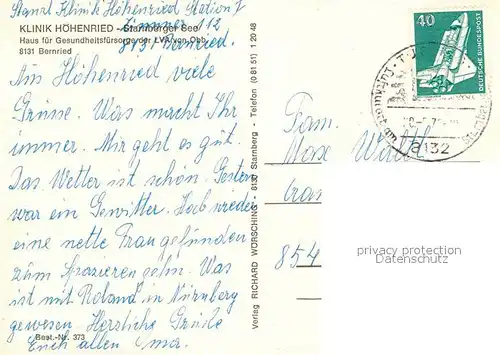 Stanzl Klinik Höhenried Station I
Zimmer 112
KLINIK HÖHENRIED - Starnberger See
8131 Bernried.
Haus für Gesundheitsfürsorge der LVA von Obb.
8131 Bernried
Aus Höhenried viele
Grüsse. Was macht Ihr
immer. Mir geht es gut.
Das Wetter ist schön. Gestern
war ein Gewitter. Hab wieder
eine nette Frau gefunden
zum Spazieren gehn. Was
ist mit Roland in Nürnberg
gewesen Herzliche Grüße
Euch allen
Best.-Nr. 373
Verlag RICHARD WÖRSCHING - 8130 Starnberg - Telefon (0 81 51) 1 20 48
40
DEUTSCHE BUNDESPOST
8132
Fam.
Max
854
privacy protection
Datenschutz